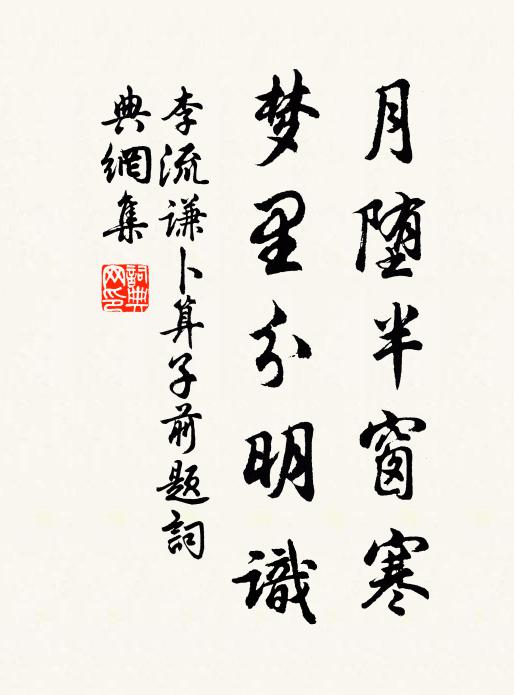 月堕半窗寒
梦里分明識
李流谦卜算子前题詞
典網集
詞典网印